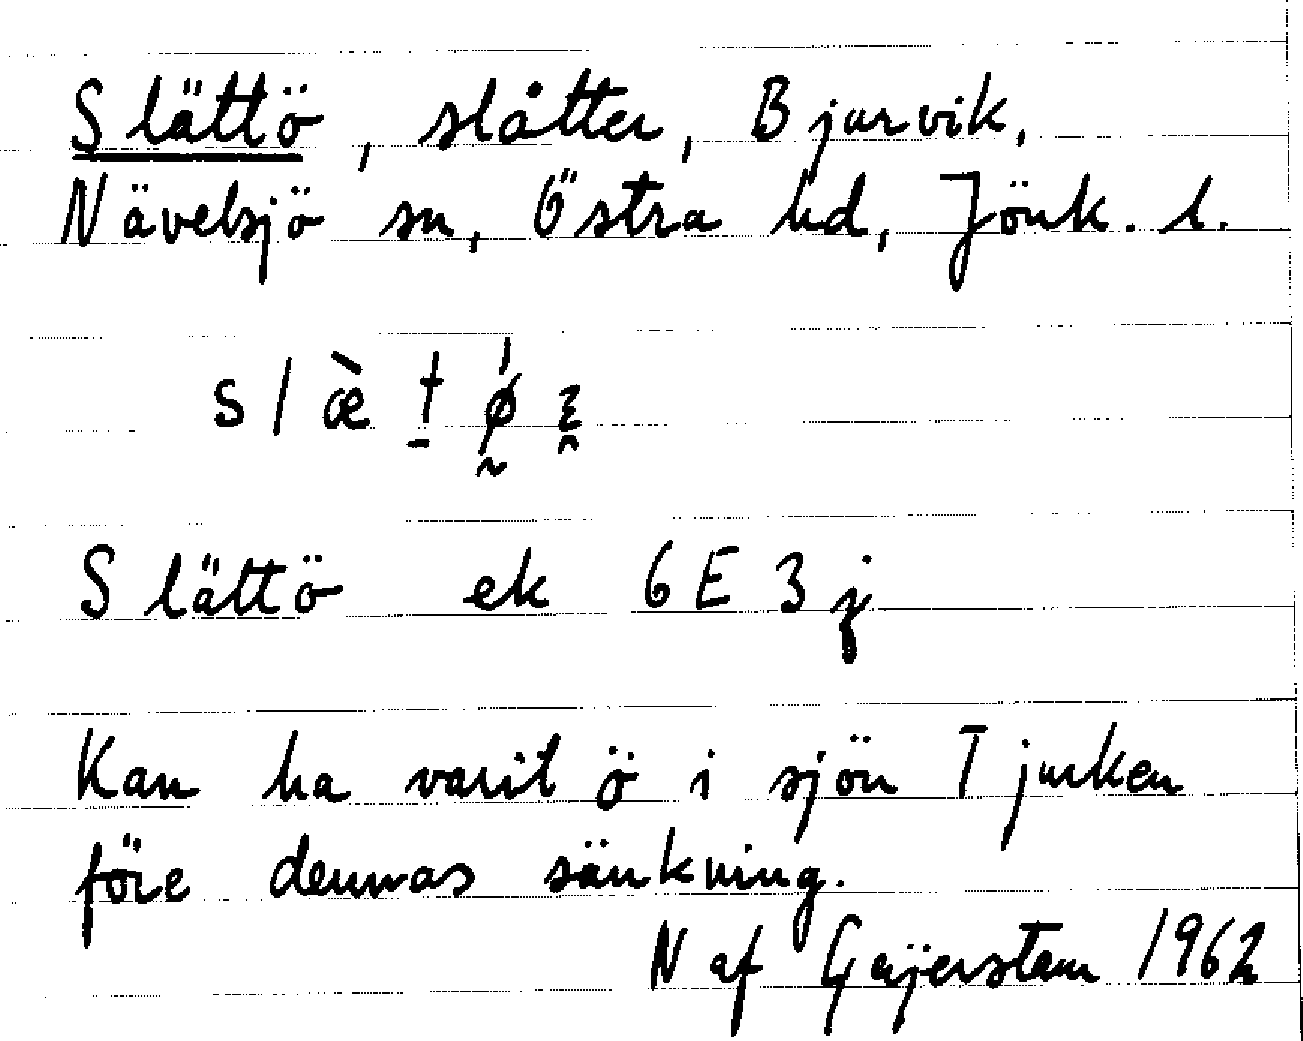 Slättö, slåtter, Bjurvik,
Nävelsjö sn, Östra hd, Jönk. l.
Slättö ek 6E3j
Kan ha varit ö i sjön Tjurken
före dennas sänkning.
N af Geijerstam 1962